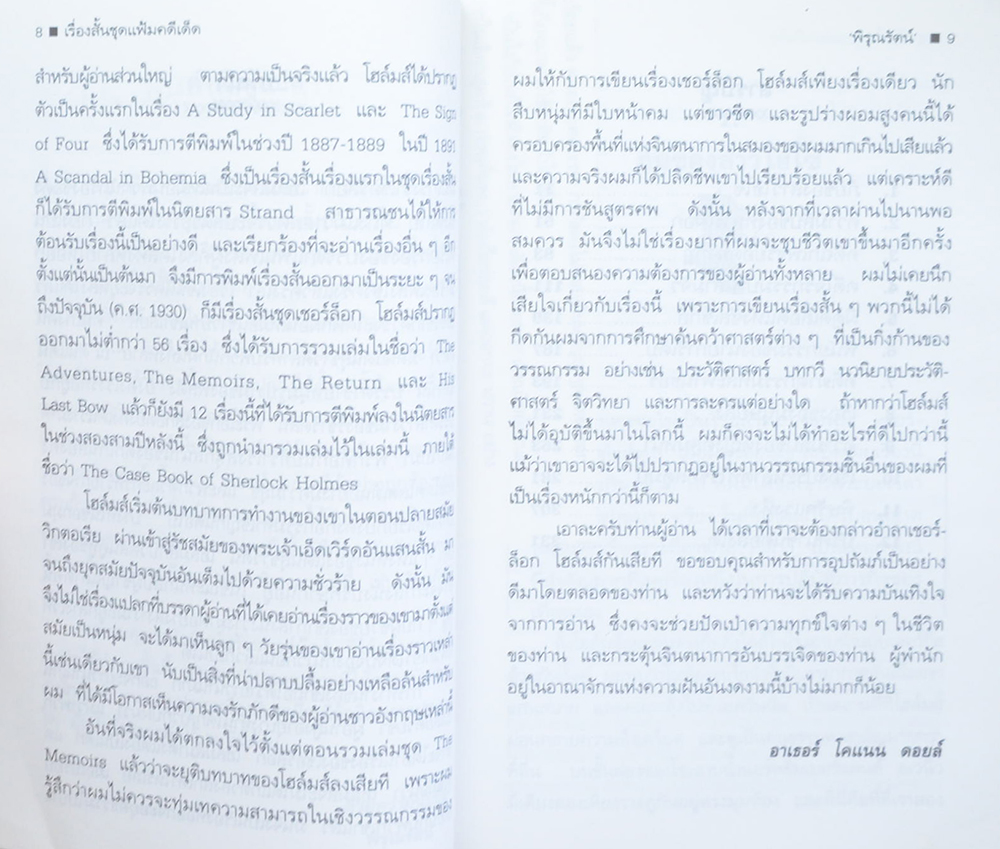 8 ■ เรื่องสั้นชุดแฟ้มคดีเด็ด
สำหรับผู้อ่านส่วนใหญ่ ตามความเป็นจริงแล้ว โฮล์มส์ได้ปรากฏ
ตัวเป็นครั้งแรกในเรื่อง A Study in Scarlet และ The Sign
of Four ซึ่งได้รับการตีพิมพ์ในช่วงปี 1887-1889 ในปี 1891
A Scandal in Bohemia ซึ่งเป็นเรื่องสั้นเรื่องแรกในชุดเรื่องสั้น
ก็ได้รับการตีพิมพ์ในนิตยสาร Strand สาธารณชนได้ให้การ
ต้อนรับเรื่องนี้เป็นอย่างดี และเรียกร้องที่จะอ่านเรื่องอื่น ๆ อีก
ตั้งแต่นั้นเป็นต้นมา จึงมีการพิมพ์เรื่องสั้นออกมาเป็นระยะ ๆ จน
ถึงปัจจุบัน (ค.ศ. 1930) ก็มีเรื่องสั้นชุดเชอร์ล็อก โฮล์มส์ปรากฏ
ออกมาไม่ต่ำกว่า 56 เรื่อง ซึ่งได้รับการรวมเล่มในชื่อว่า The
Adventures, The Memoirs, The Return และ His
Last Bow แล้วก็ยังมี 12 เรื่องนี้ที่ได้รับการตีพิมพ์ลงในนิตยสาร
ในช่วงสองสามปีหลังนี้ ซึ่งถูกนำมารวมเล่มไว้ในเล่มนี้ ภายใต้
ชื่อว่า The Case Book of Sherlock Holmes
โฮล์มส์เริ่มต้นบทบาทการทำงานของเขาในตอนปลายสมัย
วิกตอเรีย ผ่านเข้าสู่รัชสมัยของพระเจ้าเอ็ดเวิร์ดอันแสนสั้น มา
จนถึงยุคสมัยปัจจุบันอันเต็มไปด้วยความชั่วร้าย ดังนั้น มัน
จึงไม่ใช่เรื่องแปลกที่บรรดาผู้อ่านที่ได้เคยอ่านเรื่องราวของเขามาตั้งแต่
สมัยเป็นหนุ่ม จะได้มาเห็นลูก ๆ วัยรุ่นของเขาอ่านเรื่องราวเหล่า
นี้เช่นเดียวกับเขา นับเป็นสิ่งที่น่าปลาบปลื้มอย่างเหลือล้นสำหรับ
ผม ที่ได้มีโอกาสเห็นความจงรักภักดีของผู้อ่านชาวอังกฤษเหล่านี้
อันที่จริงผมได้ตกลงใจไว้ตั้งแต่ตอนรวมเล่มชุด The
Memoirs แล้วว่าจะยุติบทบาทของโฮล์มส์ลงเสียที เพราะผม
รู้สึกว่าผมไม่ควรจะทุ่มเทความสามารถในเชิงวรรณกรรมของ
'พิรุณรัตน์' ■ 9
ผมให้กับการเขียนเรื่องเชอร์ล็อก โฮล์มส์เพียงเรื่องเดียว นัก
สืบหนุ่มที่มีใบหน้าคม แต่ขาวซีด และรูปร่างผอมสูงคนนี้ได้
ครอบครองพื้นที่แห่งจินตนาการในสมองของผมมากเกินไปเสียแล้ว
และความจริงผมก็ได้ปลิดชีพเขาไปเรียบร้อยแล้ว แต่เคราะห์ดี
ที่ไม่มีการชันสูตรศพ ดังนั้น หลังจากที่เวลาผ่านไปนานพอ
สมควร มันจึงไม่ใช่เรื่องยากที่ผมจะชุบชีวิตเขาขึ้นมาอีกครั้ง
เพื่อตอบสนองความต้องการของผู้อ่านทั้งหลาย ผมไม่เคยนึก
เสียใจเกี่ยวกับเรื่องนี้ เพราะการเขียนเรื่องสั้น ๆ พวกนี้ไม่ได้
กีดกันผมจากการศึกษาค้นคว้าศาสตร์ต่าง ๆ ที่เป็นกิ่งก้านของ
วรรณกรรม อย่างเช่น ประวัติศาสตร์ บทกวี นวนิยายประวัติ-
ศาสตร์ จิตวิทยา และการละครแต่อย่างใด ถ้าหากว่าโฮล์มส์
ไม่ได้อุบัติขึ้นมาในโลกนี้ ผมก็คงจะไม่ได้ทำอะไรที่ดีไปกว่านี้
แม้ว่าเขาอาจจะได้ไปปรากฏอยู่ในงานวรรณกรรมชิ้นอื่นของผมที่
เป็นเรื่องหนักกว่านี้ก็ตาม
เอาละครับท่านผู้อ่าน ได้เวลาที่เราจะต้องกล่าวอำลาเชอร์-
ล็อก โฮล์มส์กันเสียที ขอขอบคุณสำหรับการอุปถัมภ์เป็นอย่าง
ดีมาโดยตลอดของท่าน และหวังว่าท่านจะได้รับความบันเทิงใจ
จากการอ่าน ซึ่งคงจะช่วยปัดเป่าความทุกข์ใจต่าง ๆ ในชีวิต
ของท่าน และกระตุ้นจินตนาการอันบรรเจิดของท่าน ผู้พำนัก
อยู่ในอาณาจักรแห่งความฝันอันงดงามนี้บ้างไม่มากก็น้อย
อาเธอร์ โคแนน ดอยล์